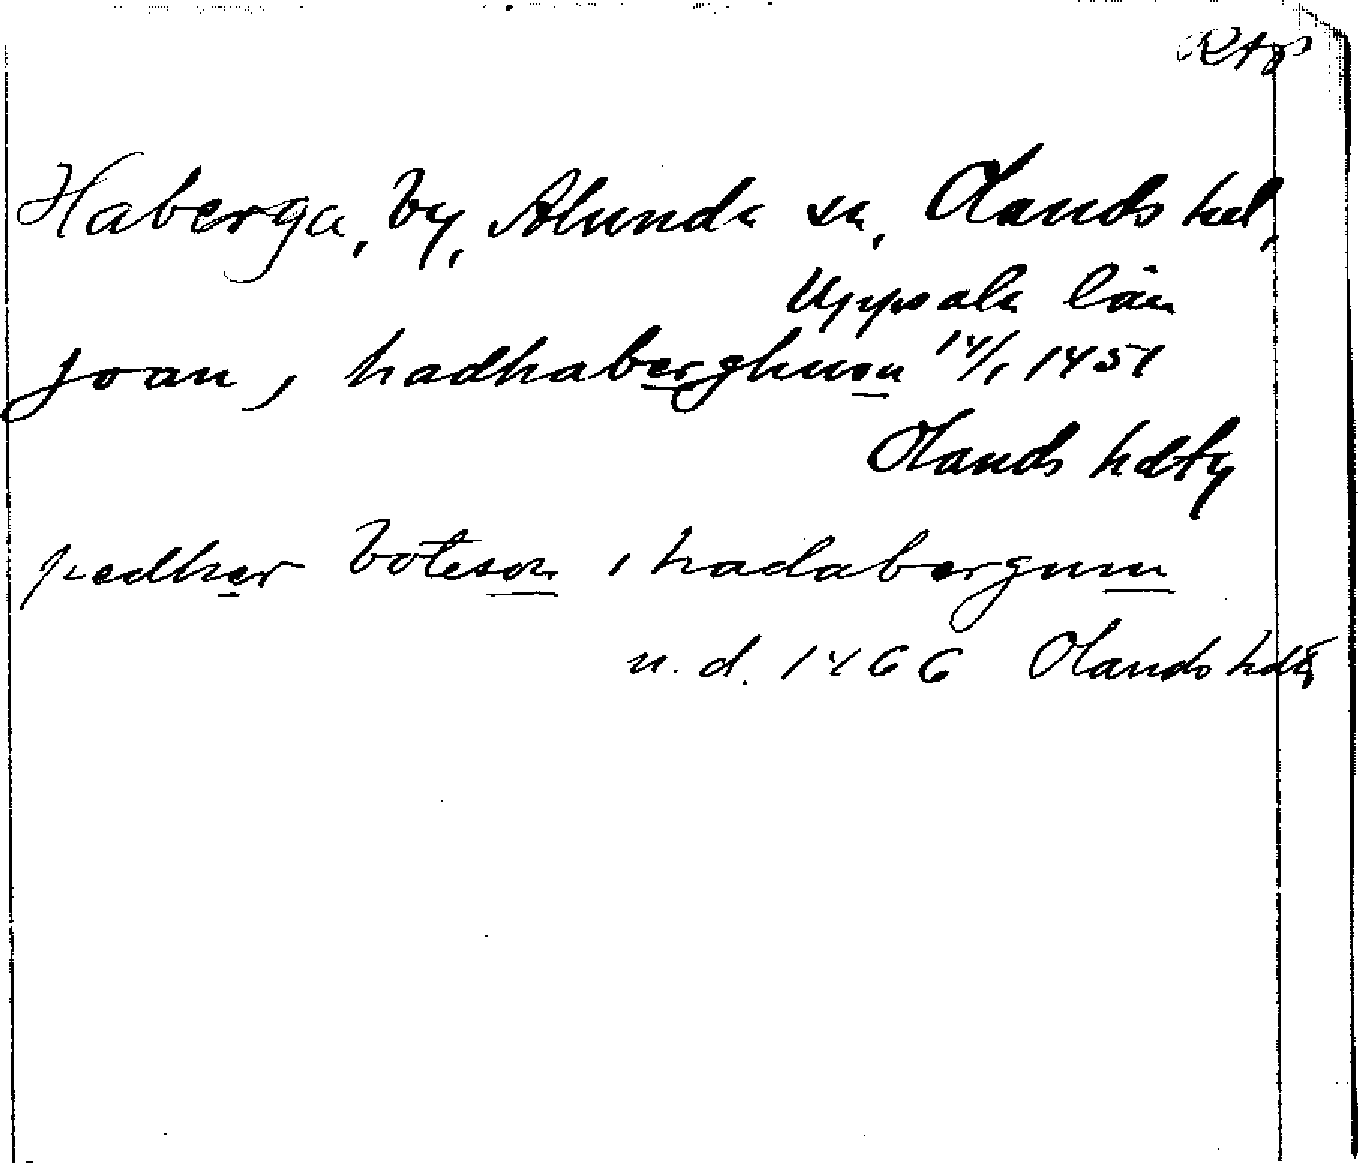 RAp
Haberga, by, Alunda sn, Olands hd,
Uppsala län
joan j hadhaberghum 14/1 1451
Olands hdtg
pedher boteson i hadabergum
u.d. 1466 Olands hdtg